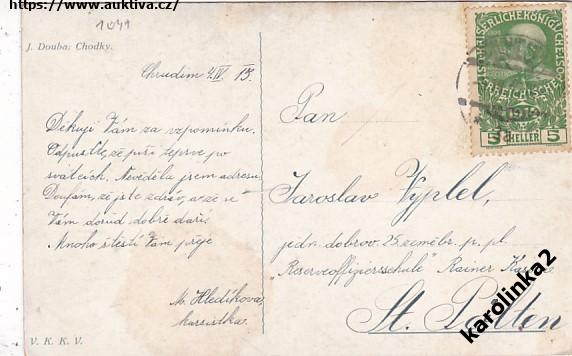 https://www.auktiva.cz/
1041
J. Douba: Chodky.
Chrudim 4/IV 15.
Děkuji Vám za vzpomínku.
Odpusťte, že píši teprve po
svátcích. Nevěděla jsem adresu.
Doufám, že jste zdráv, a že se
Vám dosud dobře daří.
Mnoho štěstí Vám přeje
M. Hledíkova
V. K. K. V.
KAISERLICHE KÖNIGLICHE
ÖSTERREICHISCHE
5 HELLER 5
Pan
Jaroslav Vyplel,
jedn. dobrov. 25. zeměbr. p. pl.
"Reserveoffiziersschule" Rainer
St. Pölten
karolinka2